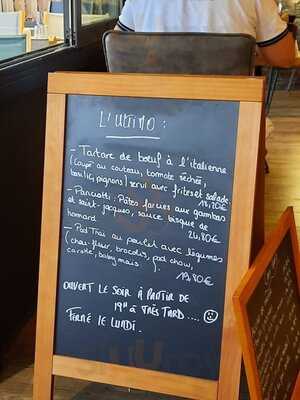 L'ULTIMO :
- Tartare de bœuf à l'italienne
(coupé au couteau, tomate séchée,
basilic, pignons) servi avec frites et salade.
18,20€
- Panciotti : Pâtes farcies aux gambas
et saint-jacques, sauce bisque de
homard. 24,80€
- Pad Thaï au poulet avec légumes
(chou-fleur, brocolis, pad chow,
carotte, baby maïs). 19,80€
OUVERT LE SOIR À PARTIR DE
19H À TRÈS TARD....
FERMÉ LE LUNDI.